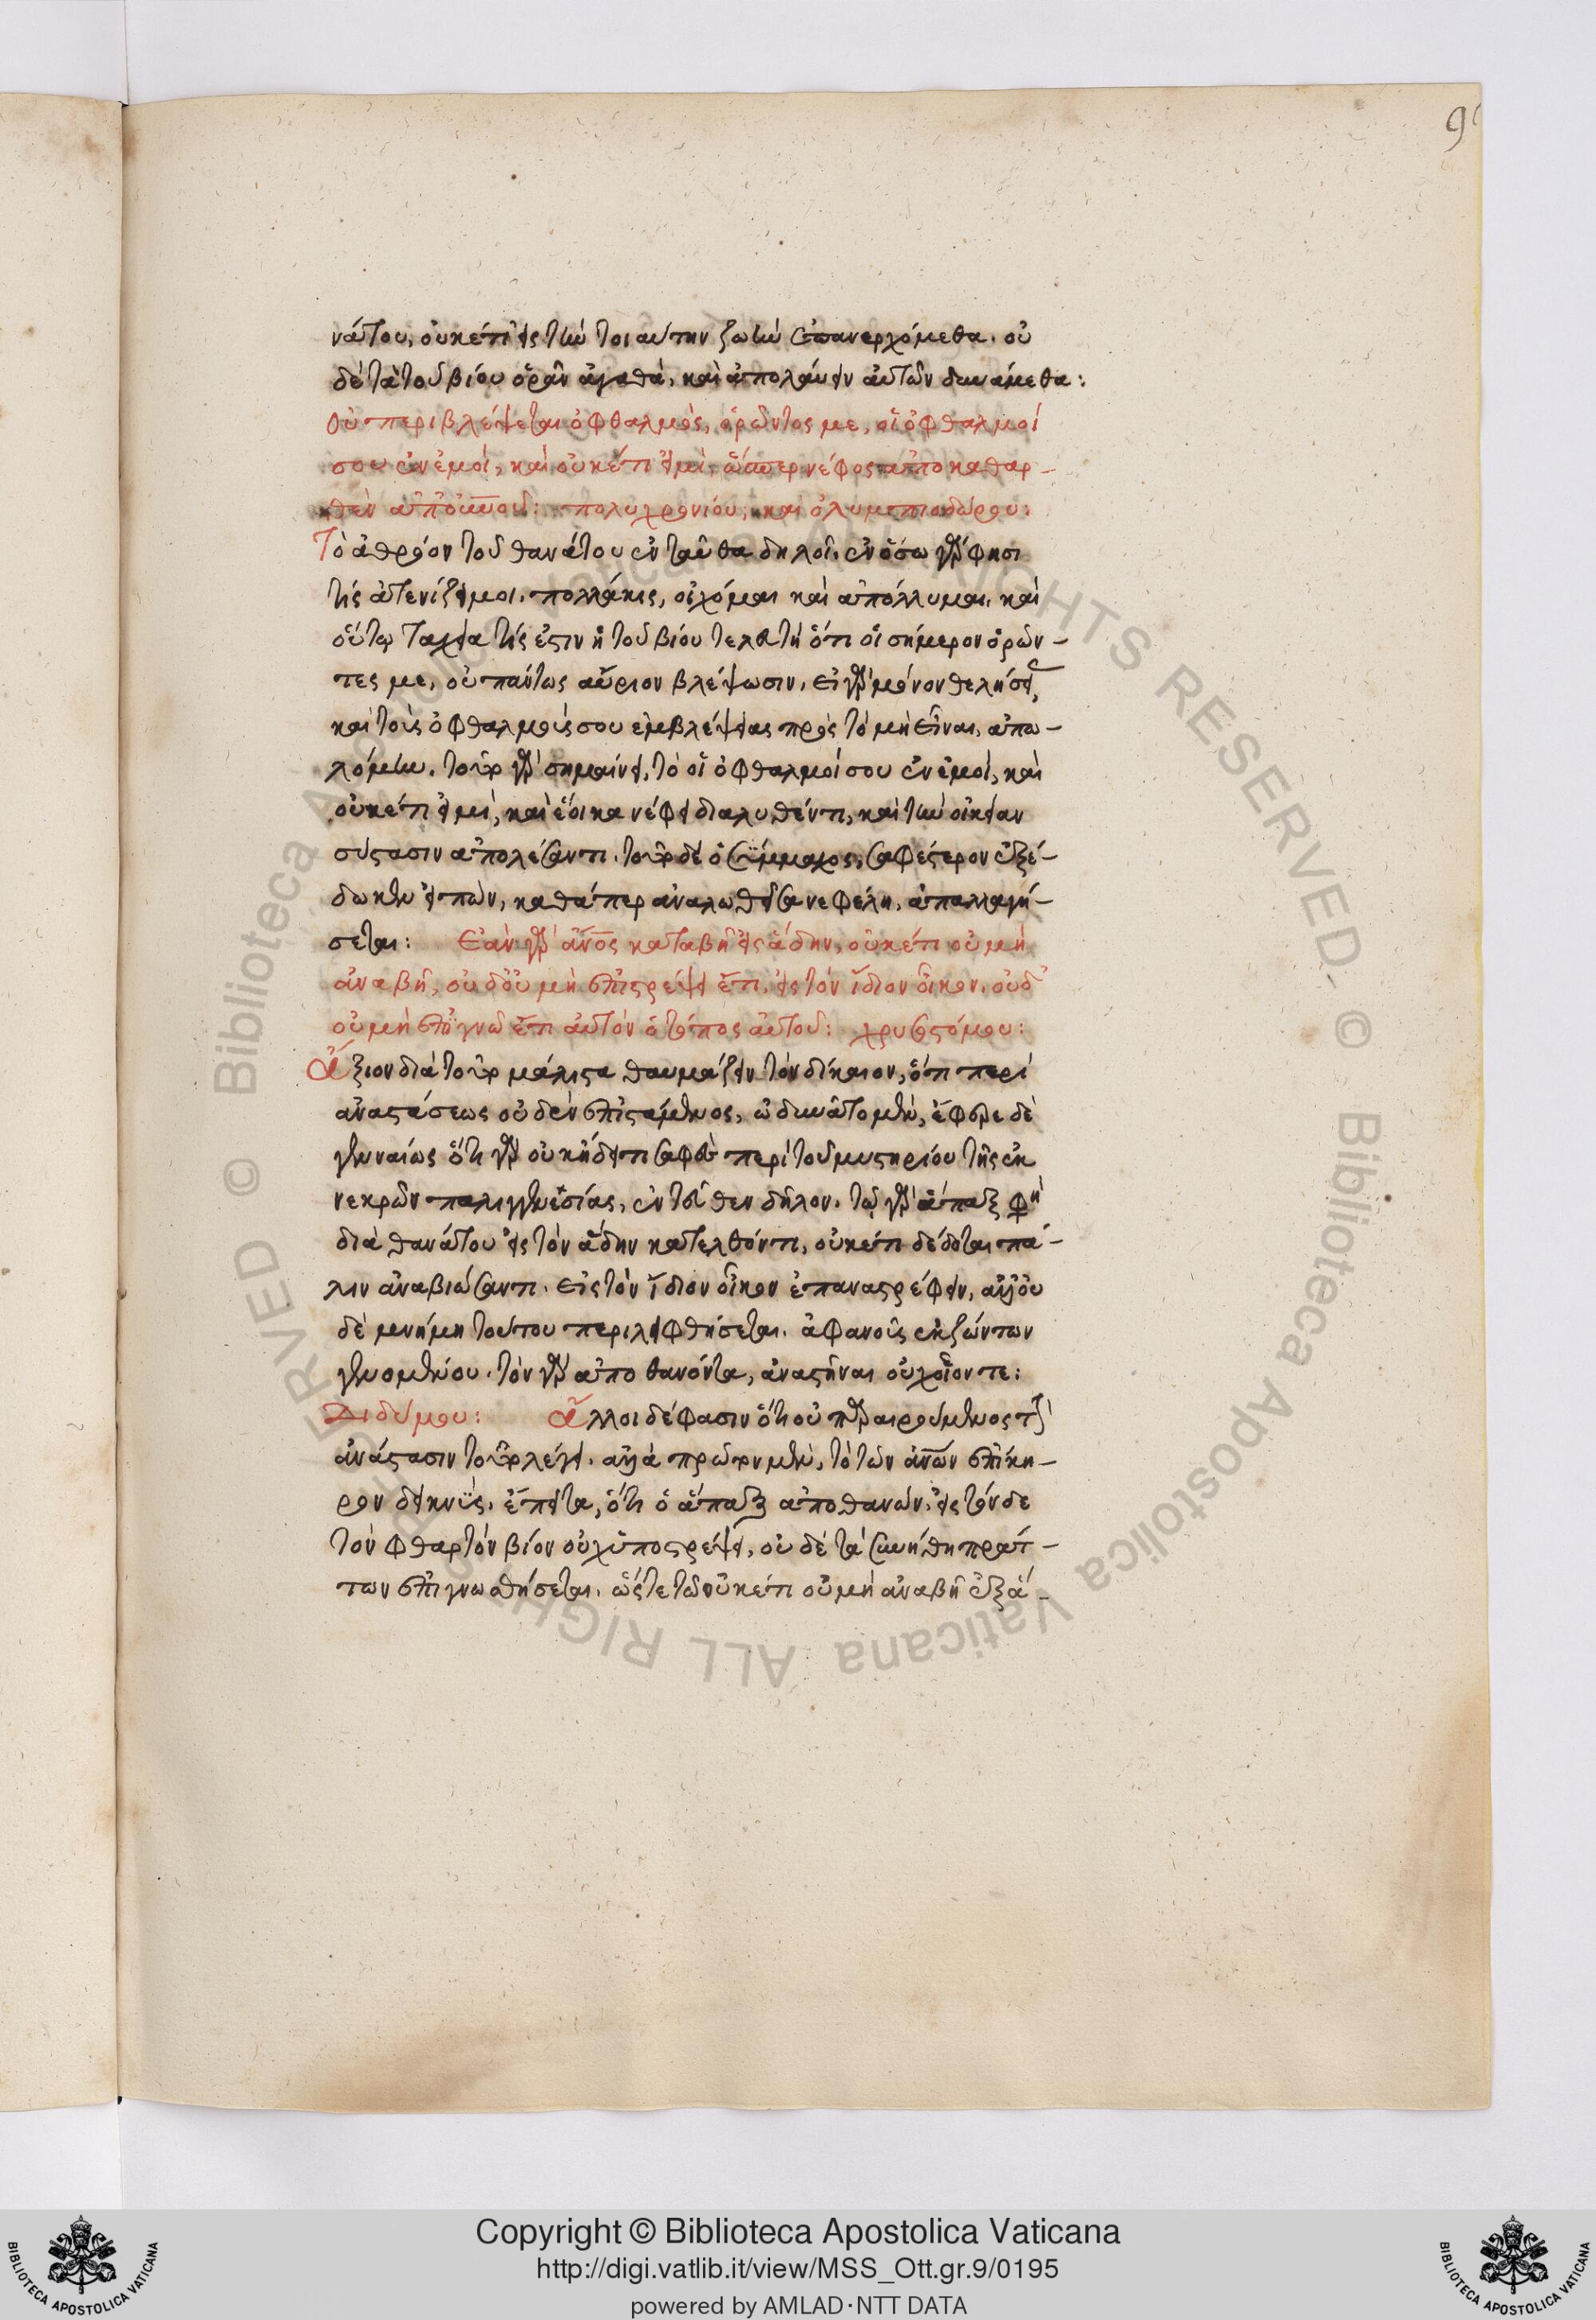 9
νάτου, οὐκέτι εἰς τὴν τοιαύτην ζωὴν ἐπανερχόμεθα. οὐ
δὲ τὰ τοῦ βίου ὁρᾶν ἀγαθὰ, καὶ ἀπολαύειν αὐτῶν δυνάμεθα:
Οὐ περιβλέψεται ὀφθαλμὸς, ὁρῶντος με, οἱ ὀφθαλμοί
σου ἐν ἐμοὶ, καὶ οὐκέτι εἰμὶ, ὥσπερ νέφος ἀποκαθαρ-
θὲν ἀπὸ οὐνοῦ: πολυχρονίου, καὶ ὀλυμπιοδώρου:
Τὸ ἀθρόον τοῦ θανάτου ἐνταῦθα δηλοῖ. ἐν ὅσω γὰρ φησι
τίς ἀτενίζει μοι. πολλάκις, οἴχομαι καὶ ἀπόλλυμαι. καὶ
οὕτω ταχεῖα τίς ἐστιν ἡ τοῦ βίου τελευτὴ ὅτι οἱ σήμερον ὁρῶν-
τες με, οὐ πάντως αὔριον βλέψωσιν. εἰ γὰρ μόνον θελήσεις
καὶ τοῖς ὀφθαλμοῖς σου ἐμβλέψειας πρὸς τὸ μὴ εἶναι, ἀπω-
λόμην. τοῦτο γὰρ σημαίνει, τὸ οἱ ὀφθαλμοί σου ἐν ἐμοὶ, καὶ
οὐκέτι εἰμὶ, καὶ ἔοικα νέφει διαλυθέντι, καὶ τὴν οἰκείαν
σύστασιν ἀπολέσαντι. τοῦτο δὲ ὁ σύμμαχος, σαφέστερον ἐξέ-
δωκεν εἰπὼν, καθάπερ ἀναλωθεῖσα νεφέλη, ἀπαλλαγή-
σεται: Ἐὰν γὰρ ἄνος καταβῇ εἰς ἅδην, οὐκέτι οὐ μὴ
ἀναβῇ, οὐδ' οὐ μὴ ἐπιστρέψει ἔτι, εἰς τὸν ἴδιον οἶκον. οὐδ'
οὐ μὴ ἐπιγνῷ ἔτι αὐτὸν ὁ τόπος αὐτοῦ: χρυσοστόμου:
Ἄξιον διὰ τοῦτο μάλιστα θαυμάζειν τὸν δίκαιον, ὅτι περὶ
ἀναστάσεως οὐδὲν ἐπιστάμενος, ὠδυνᾶτο μὲν, ἔφερε δὲ
γενναίως ὅτι γὰρ οὐκ ᾔδει τι σαφὲς περὶ τοῦ μυστηρίου τῆς ἐκ
νεκρῶν παλιγγενεσίας, ἐντεῦθεν δῆλον. τῷ γὰρ ἅπαξ φη
διὰ θανάτου εἰς τὸν ἅδην κατελθόντι, οὐκέτι δέδοται πά-
λιν ἀναβιώσαντι. εἰς τὸν ἴδιον οἶκον ἐπαναστρέφειν, ἀλλ' οὐ
δὲ μνήμη τούτου περιλειφθήσεται. ἀφανοῦς ἐκ ζώντων
γενομένου. τὸν γὰρ ἀποθανόντα, ἀναστῆναι οὐχ οἷόν τε:
Διδύμου: Ἄλλοι δέ φασιν ὅτι οὐ παραιρούμενος τὴν
ἀνάστασιν τοῦτο λέγει. ἀλλὰ πρῶτον μὲν, τὸ τῶν ἀνων ἐπίκη-
ρον δεικνὺς. ἔπειτα, ὅτι ὁ ἅπαξ ἀποθανὼν, εἰς τόνδε
τὸν φθαρτὸν βίον οὐχ ὑποστρέψει, οὐδὲ τὰ συνήθη πράτ-
των ἐπιγνωσθήσεται. ὥστε τῶ οὐκέτι οὐ μὴ ἀναβῇ ἐξ ἅ-
© Biblioteca Apostolica Vaticana ALL RIGHTS RESERVED
Copyright © Biblioteca Apostolica Vaticana
http://digi.vatlib.it/view/MSS_Ott.gr.9/0195
powered by AMLAD·NTT DATA
BIBLIOTECA APOSTOLICA VATICANA
BIBLIOTECA APOSTOLICA VATICANA